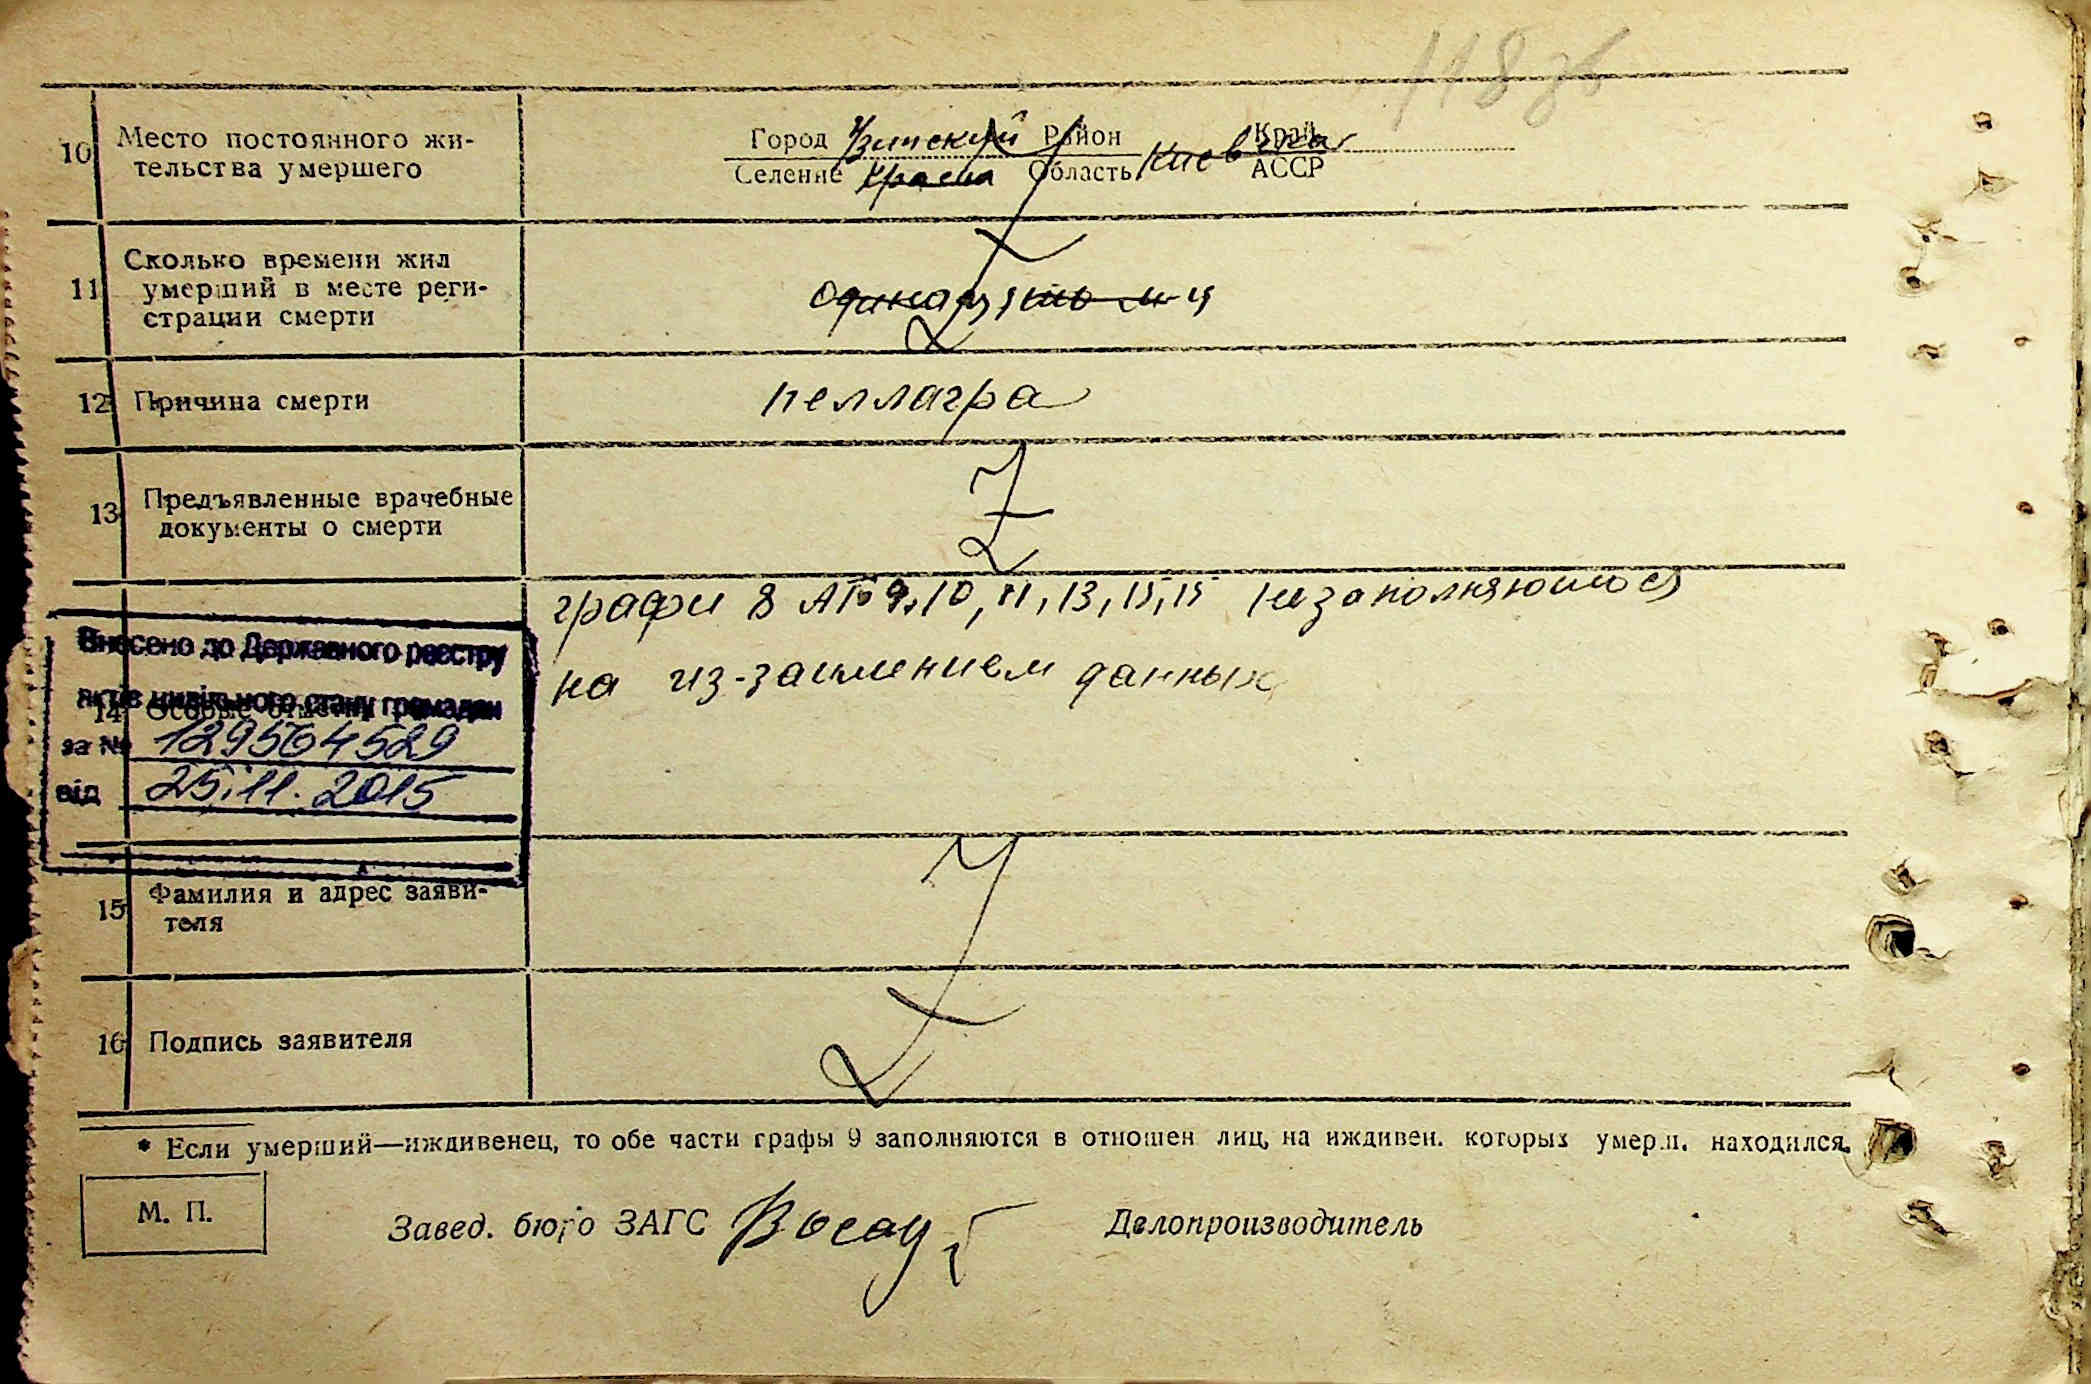 118 зв
10 Место постоянного жи-
тельства умершего
Город Район Край
Селение Область Киевская АССР
11 Сколько времени жил
умерший в месте реги-
страции смерти
12 Причина смерти
пеллагра
13 Предъявленные врачебные
документы о смерти
графи 8 9, 10, 11, 13, 15, 15
на из-за данных
Внесено до Державного реєстру
актів цивільного стану громадян
14 Особые отметки
за № 129564529
від 25.11.2015
15 Фамилия и адрес заяви-
теля
16 Подпись заявителя
* Если умерший—иждивенец, то обе части графы 9 заполняются в отношен лиц, на иждивен. которых умерш. находился.
М. П.
Завед. бюро ЗАГС Делопроизводитель